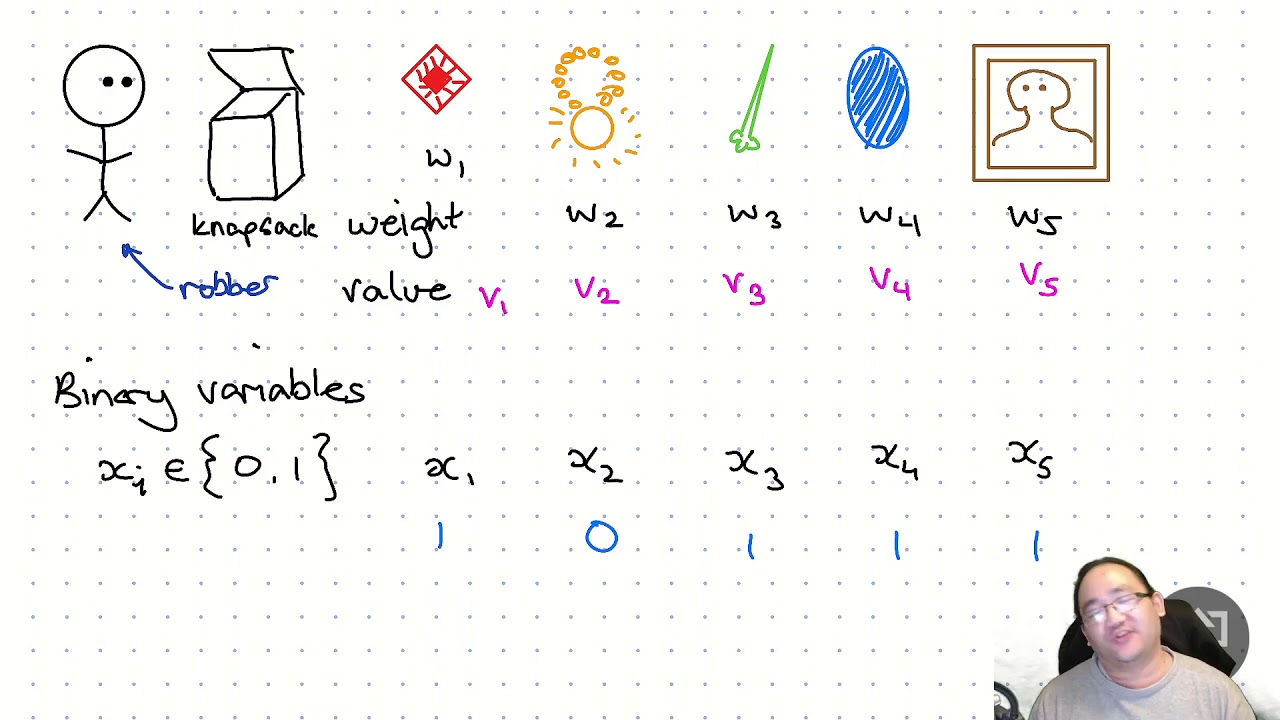 w₁
knapsack weight w₂ w₃ w₄ w₅
robber value v₁ v₂ v₃ v₄ v₅
Binary variables
xᵢ ∈ {0,1} x₁ x₂ x₃ x₄ x₅
1 0 1 1 1